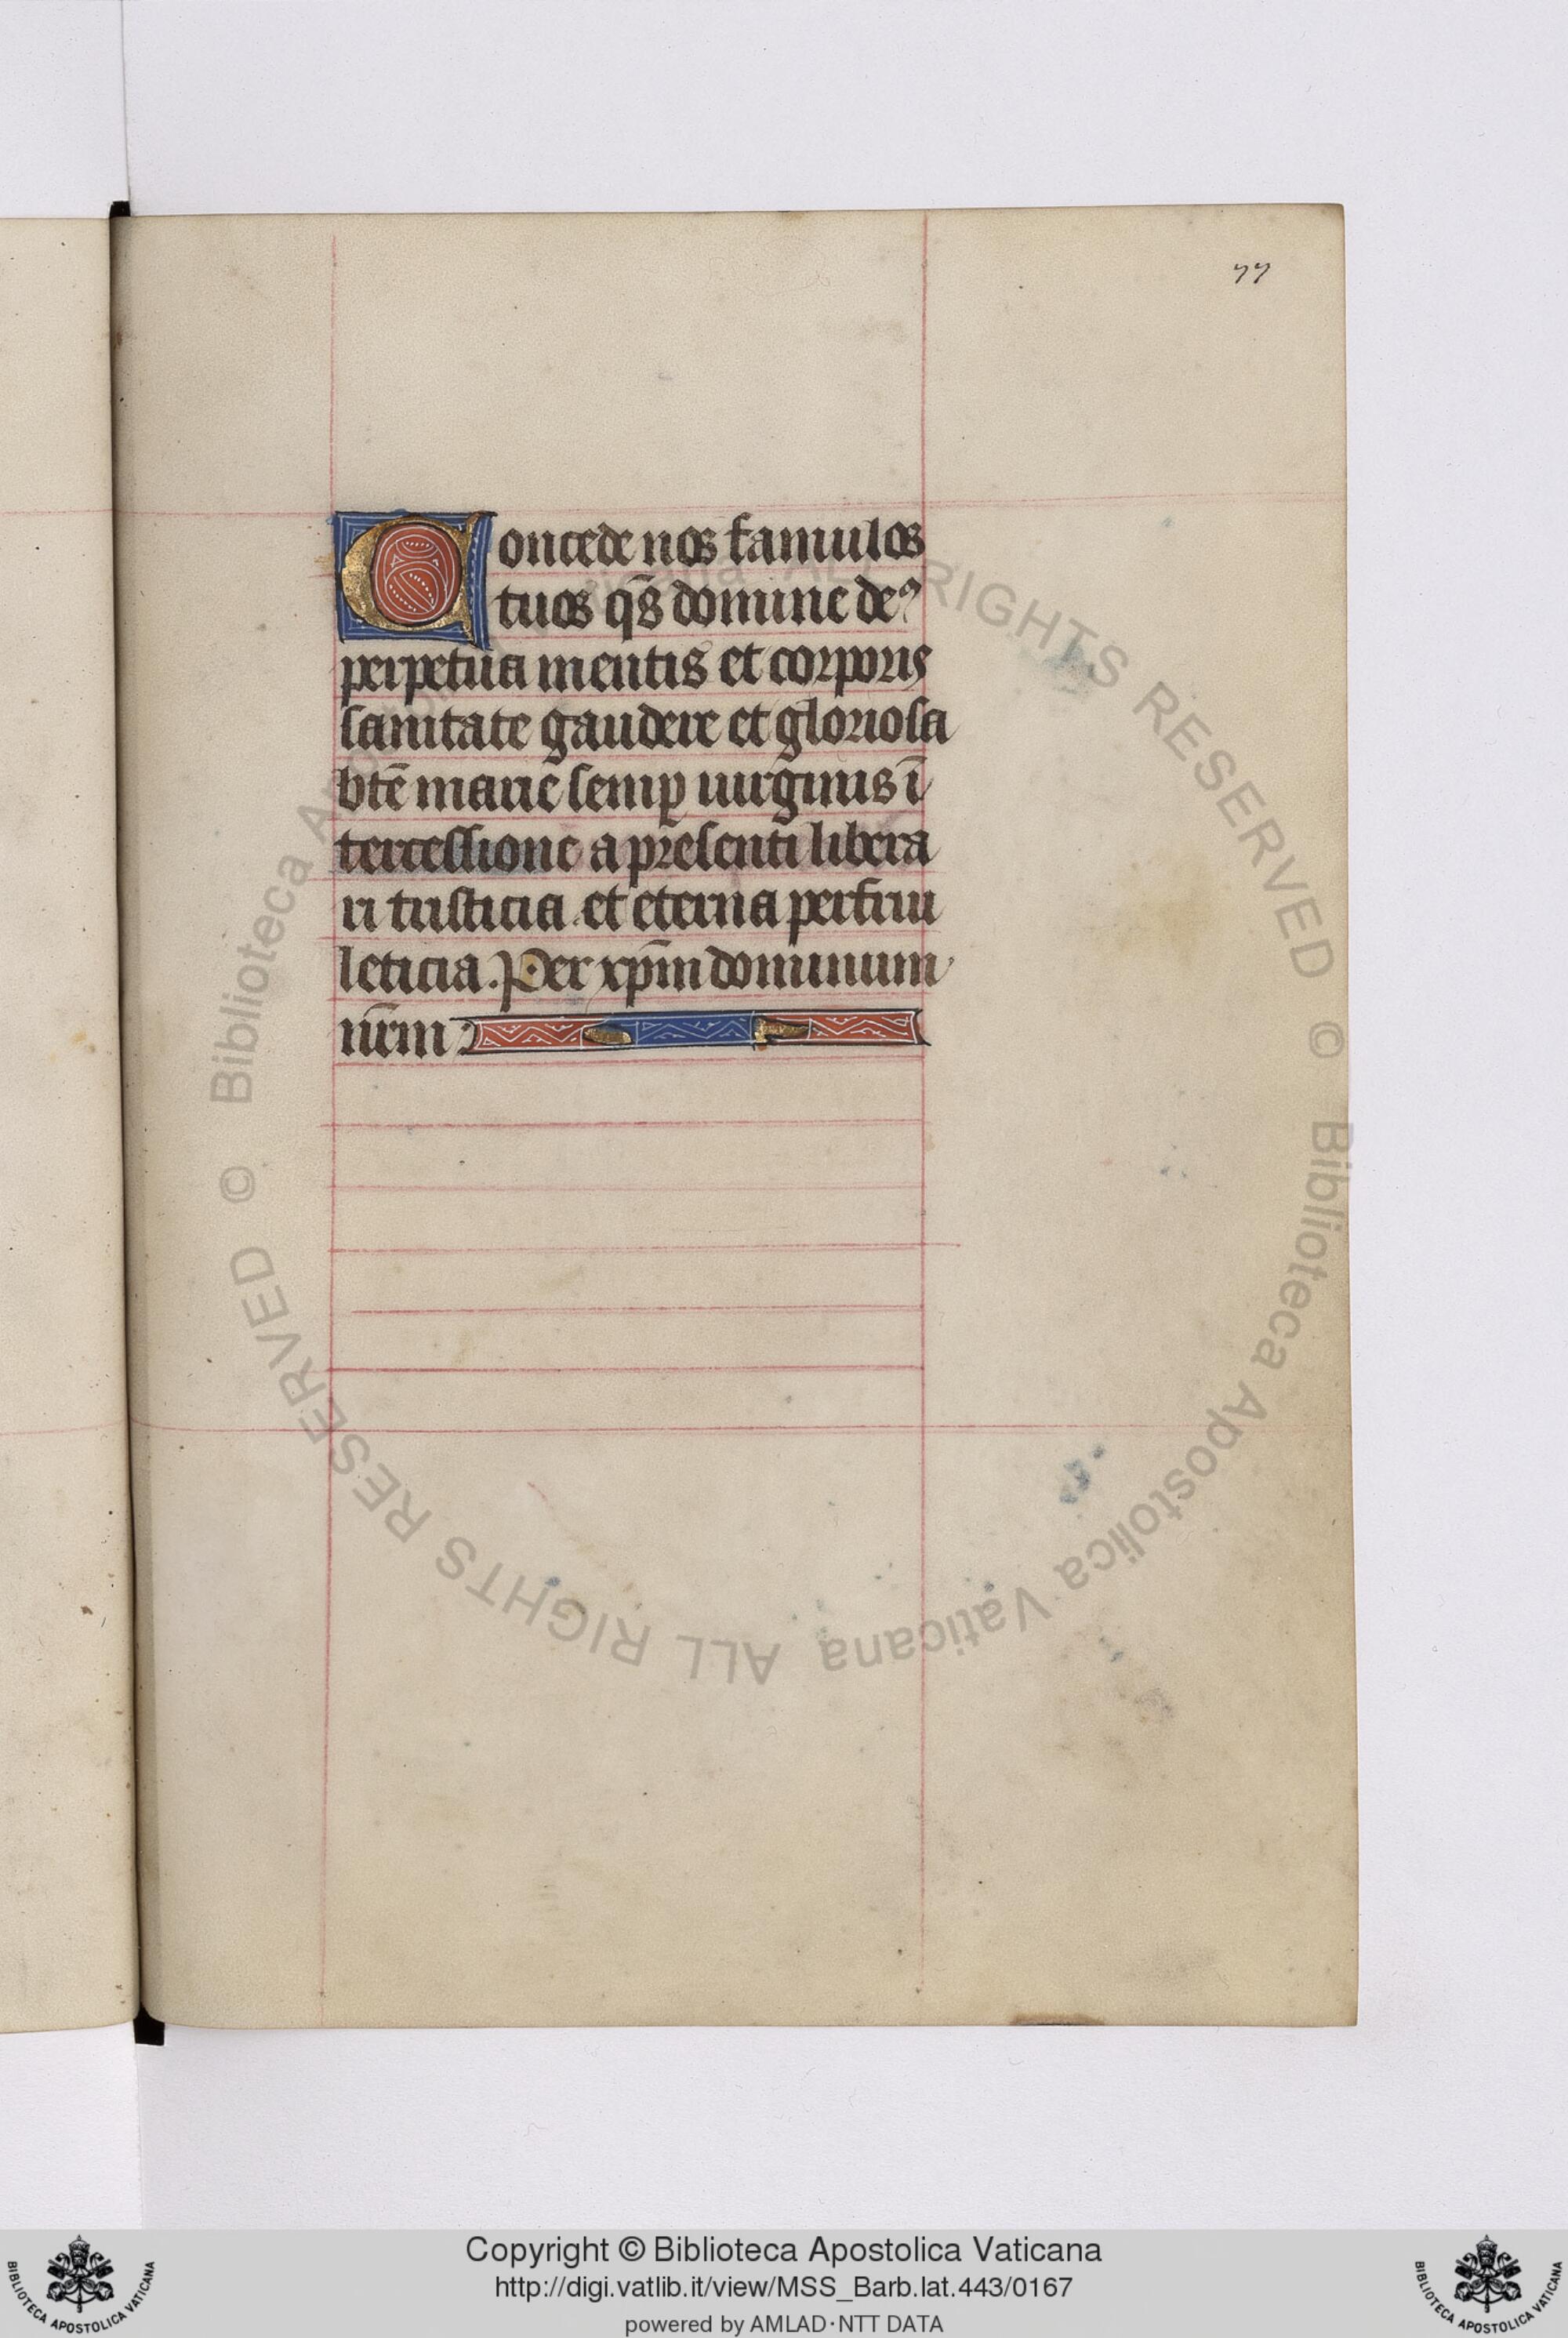 77
Concede nos famulos
tuos qs̄ domine deꝰ
perpetua mentis et corporis
sanitate gaudere et gloriosa
bt̄e marie semꝑ uirginis ī
tercessione a presenti libera
ri tristicia et eterna perfrui
leticia. Per xp̄m dominum
nr̄m
© Biblioteca Apostolica Vaticana ALL RIGHTS RESERVED
© Biblioteca Apostolica Vaticana ALL RIGHTS RESERVED
Copyright © Biblioteca Apostolica Vaticana
http://digi.vatlib.it/view/MSS_Barb.lat.443/0167
powered by AMLAD·NTT DATA
BIBLIOTECA APOSTOLICA VATICANA
BIBLIOTECA APOSTOLICA VATICANA